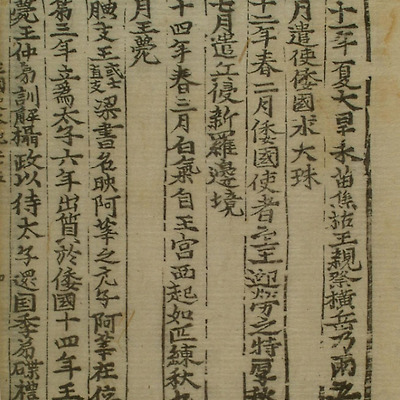 十一年夏大旱禾苗焦枯王親祭橫岳乃雨五
月遣使倭國求大珠
十二年春二月倭國使者至王迎勞之特厚秋
七月遣兵侵新羅邊境
十四年春三月白氣自王宮西起如匹練秋九
月王薨
腆支王或云直支梁書名映阿莘之元子阿莘在位
第三年立爲太子六年出質於倭國十四年王
薨王仲弟訓解攝政以待太子還国季弟碟禮